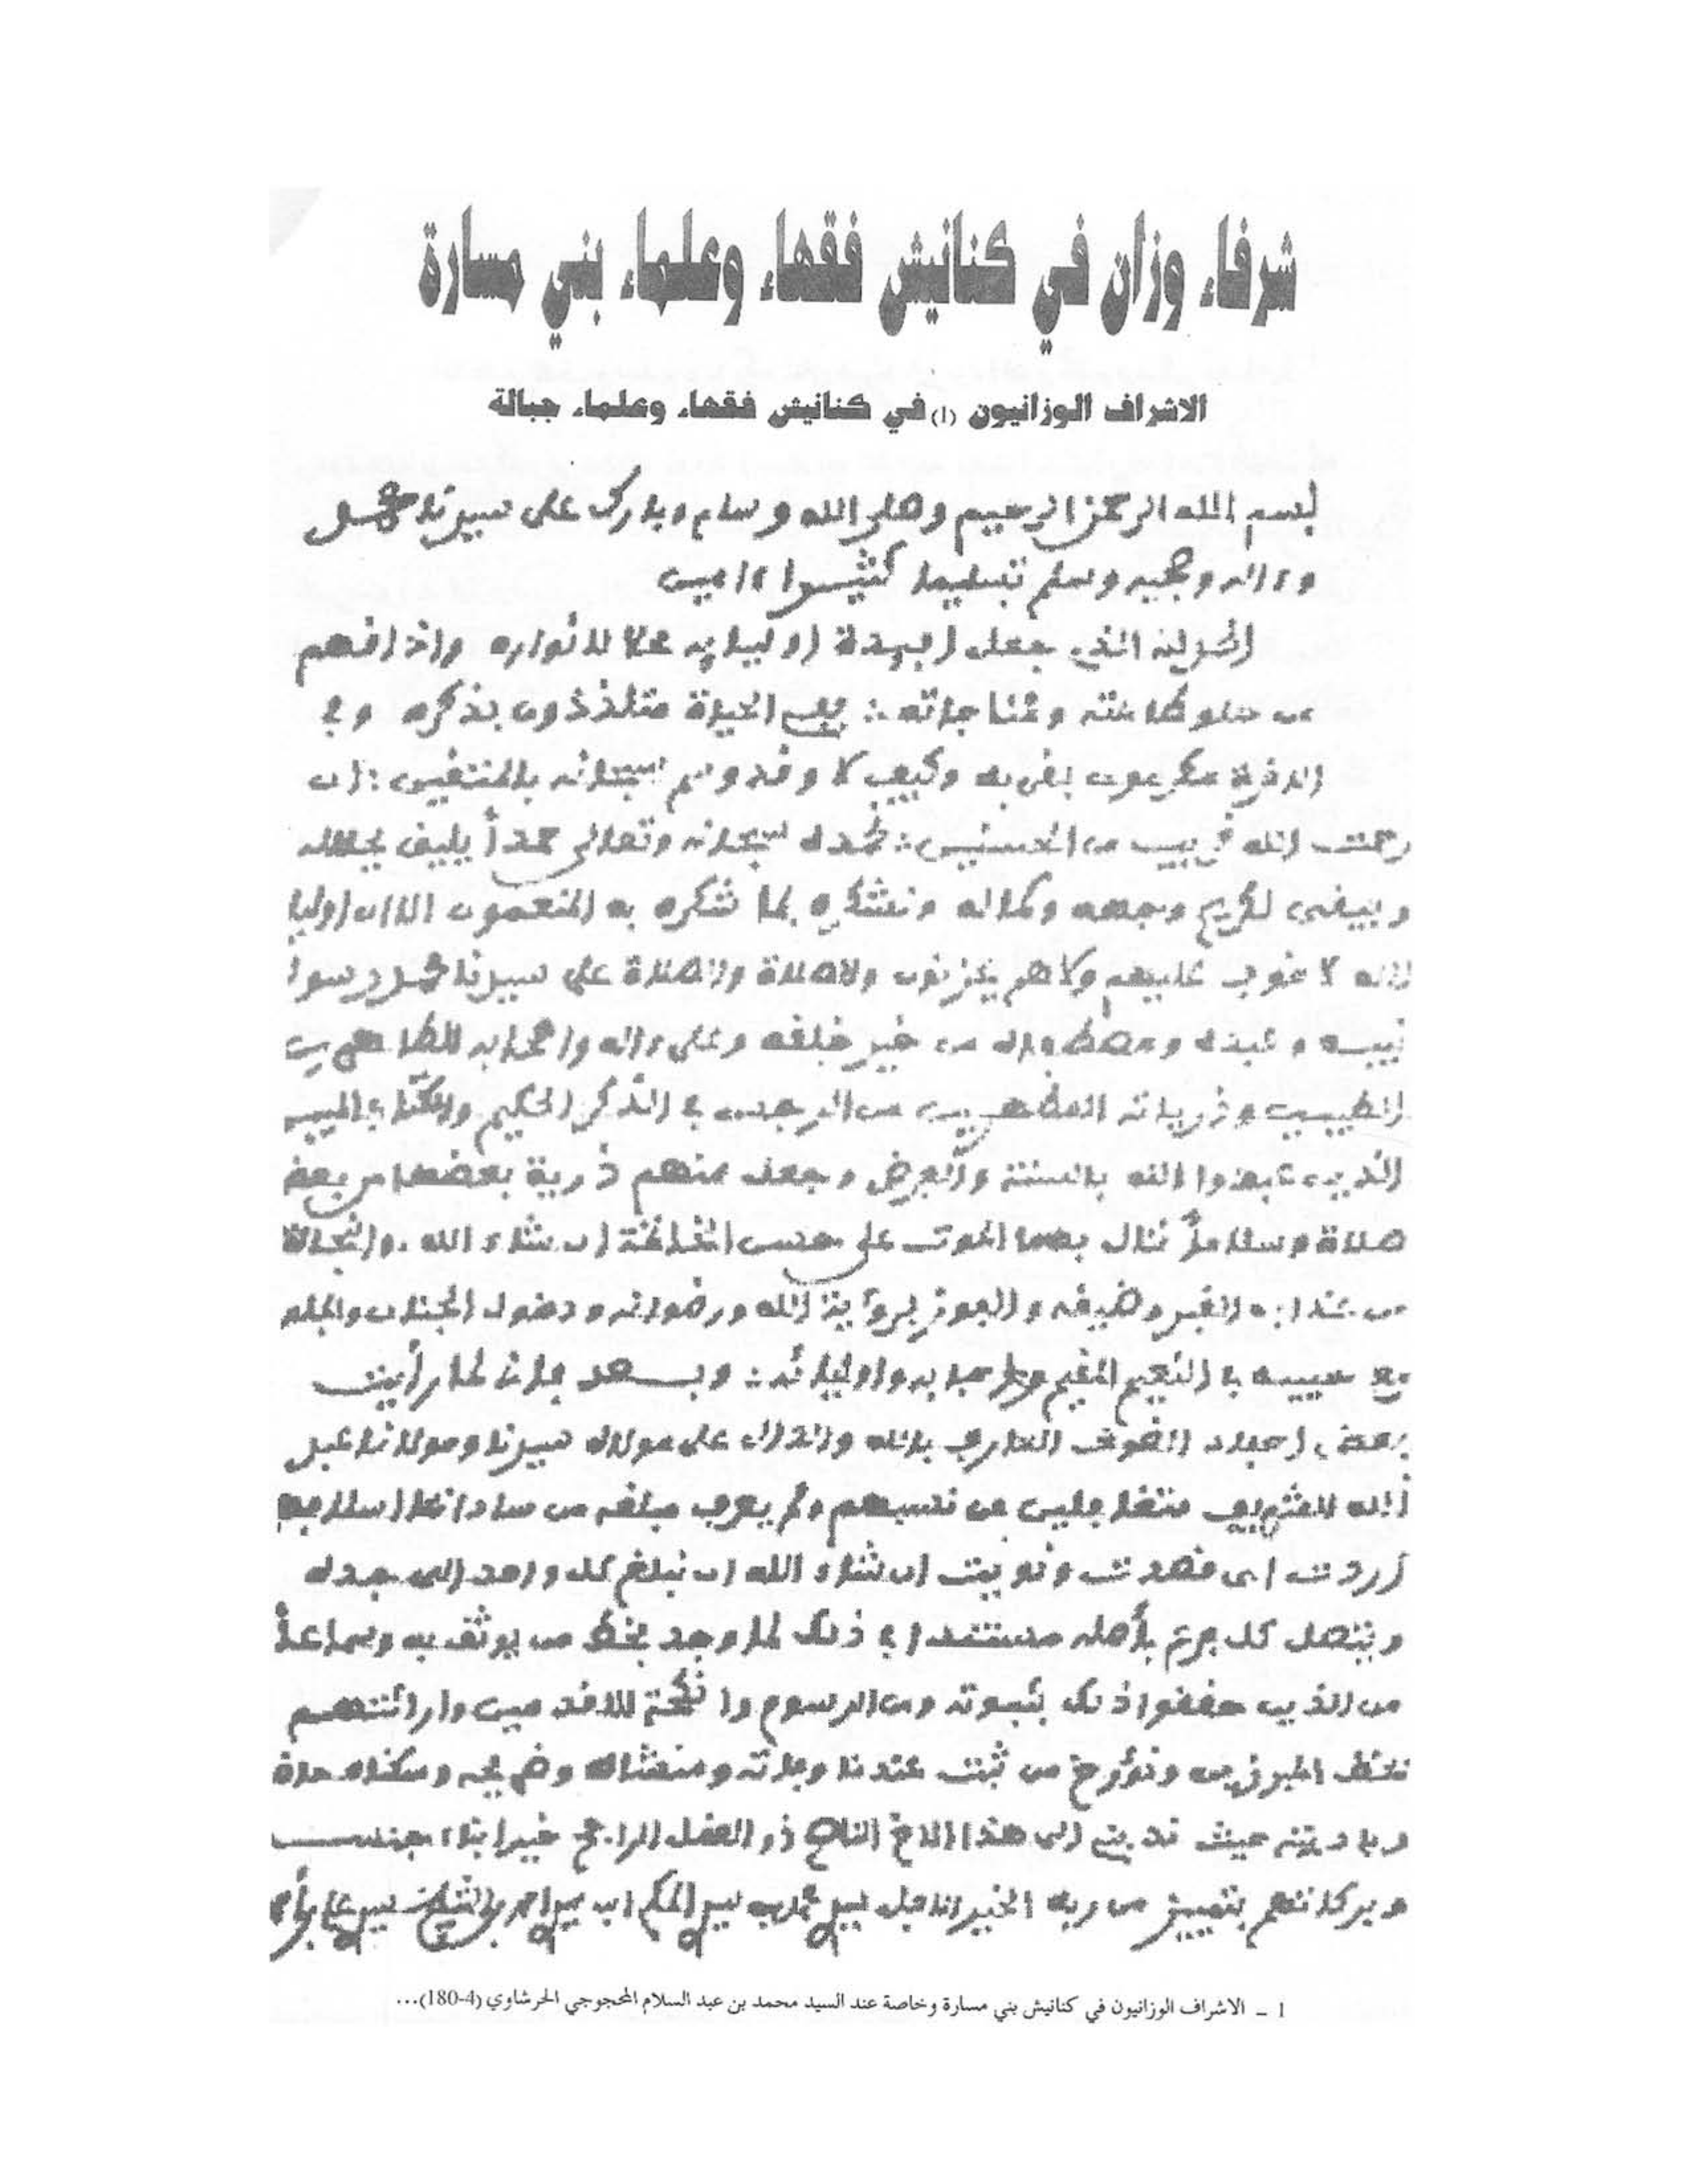 شرفاء وزان في كنانيش فقهاء وعلماء بني مسارة
الاشراف الوزانيون (1) في كنانيش فقهاء وعلماء جبالة
بسم الله الرحمن الرحيم وصلى الله وسلم وبارك على سيدنا محمد
وءاله وصحبه وسلم تسليما كثيرا ءامين
الحمد لله الذي جعل أفئدة أوليايه محلا لأنواره وأذاقهم
من طاعته ومناجاته فهم في الحياة متلذذون بذكره وفي
مكرمون بقربه وكيف لا وقد وسم سبحانه بالمتقين : ان
رحمت الله قريب من المحسنين : نحمده سبحانه وتعالى حمدا يليق بجلاله
وينبغي لكريم وجهه وكماله ونشكره بما شكره به المنعمون الا ان اوليا
الله لا خوف عليهم ولا هم يحزنون والصلاة على سيدنا محمد رسول
نبيه وعبده ومصطفاه من خير خلقه وعلى ءاله وأصحابه الطاهرين
الطيبين وذرياته المطهرين من الرجس في الذكر الحكيم والكتاب المبين
الذين عبدوا الله بالسنة والفرض وجعل منهم ذرية بعضها من بعض
صلاة وسلاما ننال بهما الموت على حسن الخاتمة ان شاء الله . والنجاة
من عذاب القبر وضيقه والفوز برؤية الله ورضوانه ودخول الجنان
مع حبيبه في النعيم المقيم وأصحابه وأوليائه : وبعد فإني لما رأيت
بعض احفاد الغوث العارف بالله والدال على مولاه سيدنا ومولانا عبد
الله الشريف متغافلين عن نسبهم ولم يعرف مبلغه من ساداتنا اسلافه
أردت اي قصدت ونويت ان شاء الله ان نبلغ كل واحد إلى جده
ونتصل كل فرع بأصله مستندا في ذلك لما وجد بخط من يوثق به وسماعا
من الذين حققوا ذلك بثبوته ومن الرسوم وانكحة الاقدمين واراثتهم
بخط المبرزين ونؤرخ من ثبت عندنا وفاته ومنشأه وضريحه وسكناه
وباديته حيث هذا الاخ الناصح ذو العقل الراجح
وبركاتهم بتمييز من ربه الخبير
1 – الاشراف الوزانيون في كنانيش بني مسارة وخاصة عند السيد محمد بن عبد السلام المحجوجي الحرشاوي (4-180)...